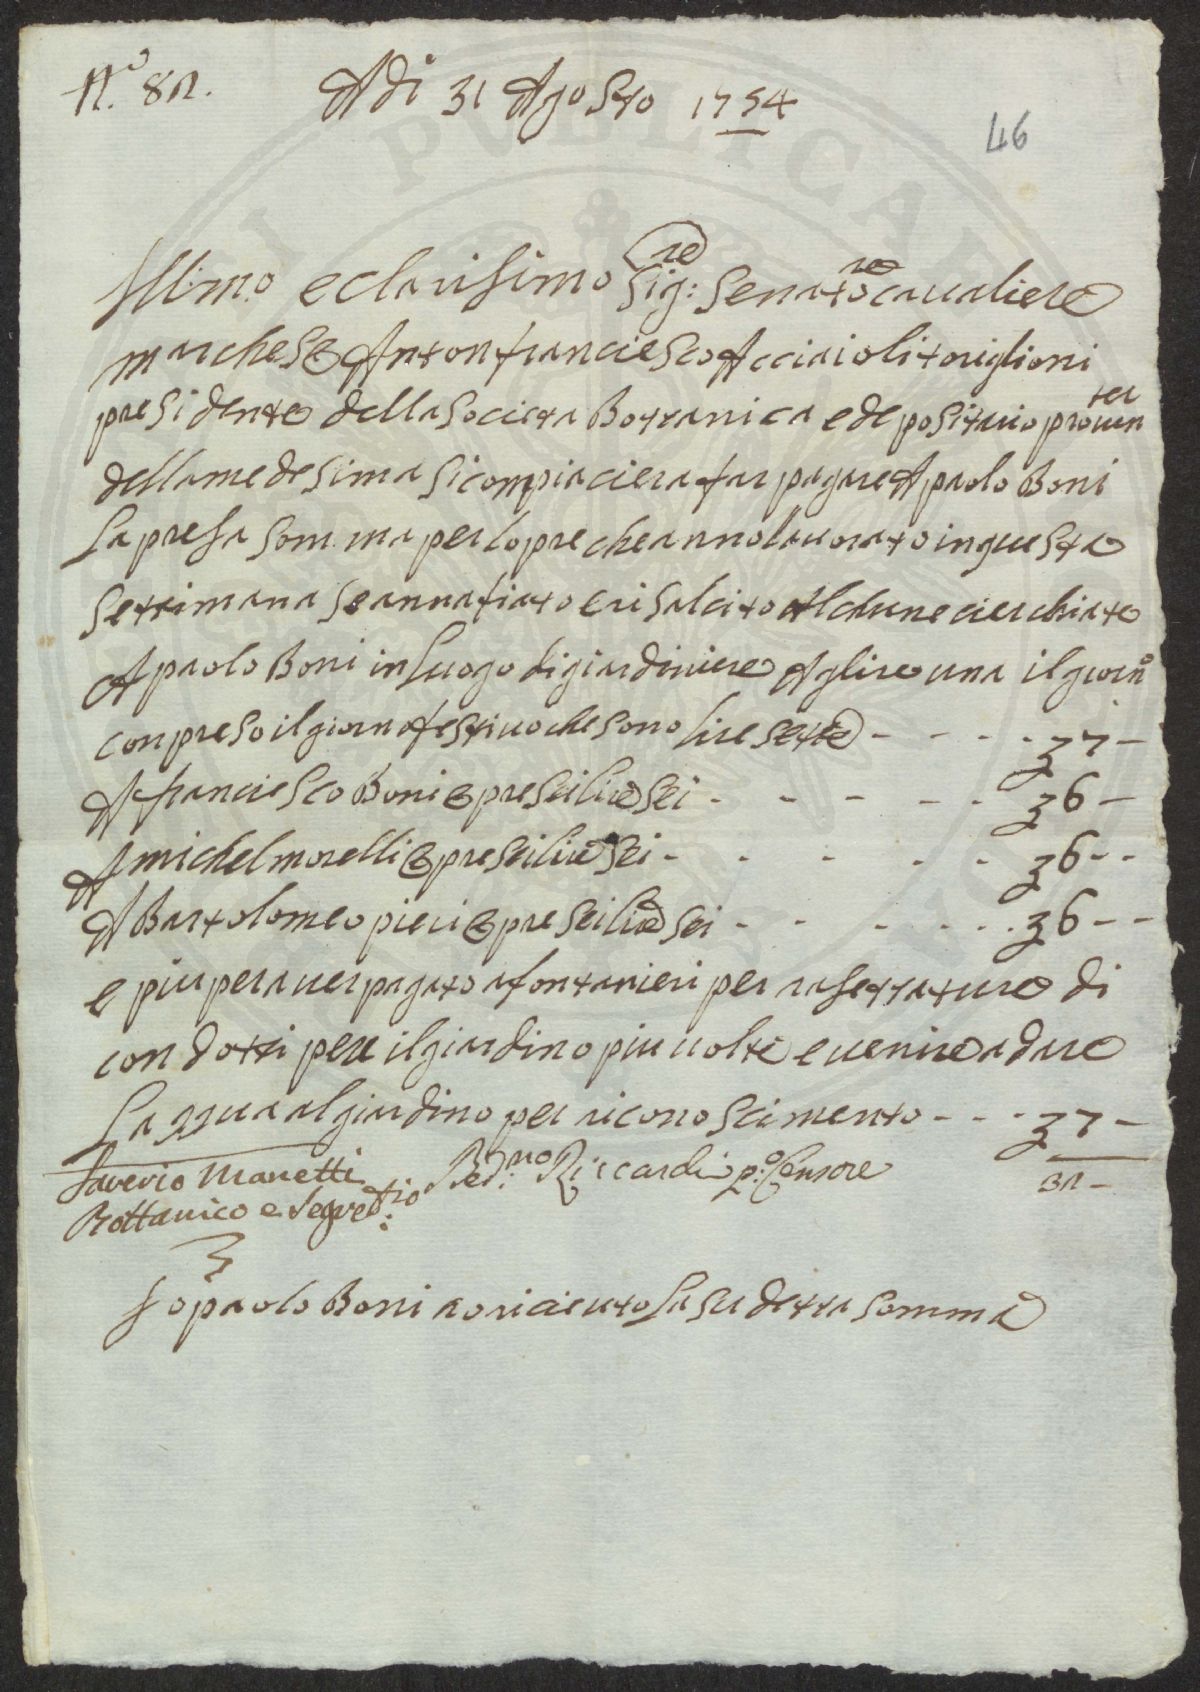 N.o 82.
Adi 31 Agosto 1754
46
Ill:mo e clarisimo Sig:re Senatore caualiere
marchese Antonfranciesco Acciaioli toriglioni
presidente della Societa Bottanica e depositario prouen
ter
della medesima si compiaciera far pagare A paolo Boni
La presa somma per lopre che anno lauorato in questa
settimana se annafiato e risalcito Alchune cierchiate
A paolo Boni in luogo di giardiniere A glire una il giorno
conpreso il giorno festiuo che sono lire sette - - - - 7 -
A franciesco Boni e pre sei lire sei - - - - - 6 -
A michel morelli e pre sei lire sei - - - - - 6 - -
A Bartolomeo pieri e pre sei lire sei - - - - - 6 - -
e piu per auer pagato a fontanieri per rasettature di
condotti per il giardino piu uolte e uenire a dare
La qqua al giardino per riconoscimento - - - 7 -
32 -
Saverio Manetti
Bottanico e Segret:rio
Ber:no Riccardi p:o Censore
Io paolo Boni ao riceuto la su detta somma